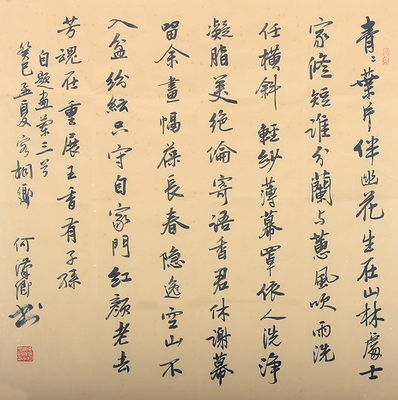 青青葉片伴幽花生在山林處士
家修短誰分蘭与蕙風吹雨洗
任橫斜 輕紗薄幕罩依人洗淨
凝脂美絕倫寄語香君休謝幕
留余畫幅葆長春 隐逸空山不
入盆紛紜只守自家門紅顏老去
芳魂在重展王香有子孫
自題畫蘭三首
癸巳孟夏客桐鄉
何濤卿書